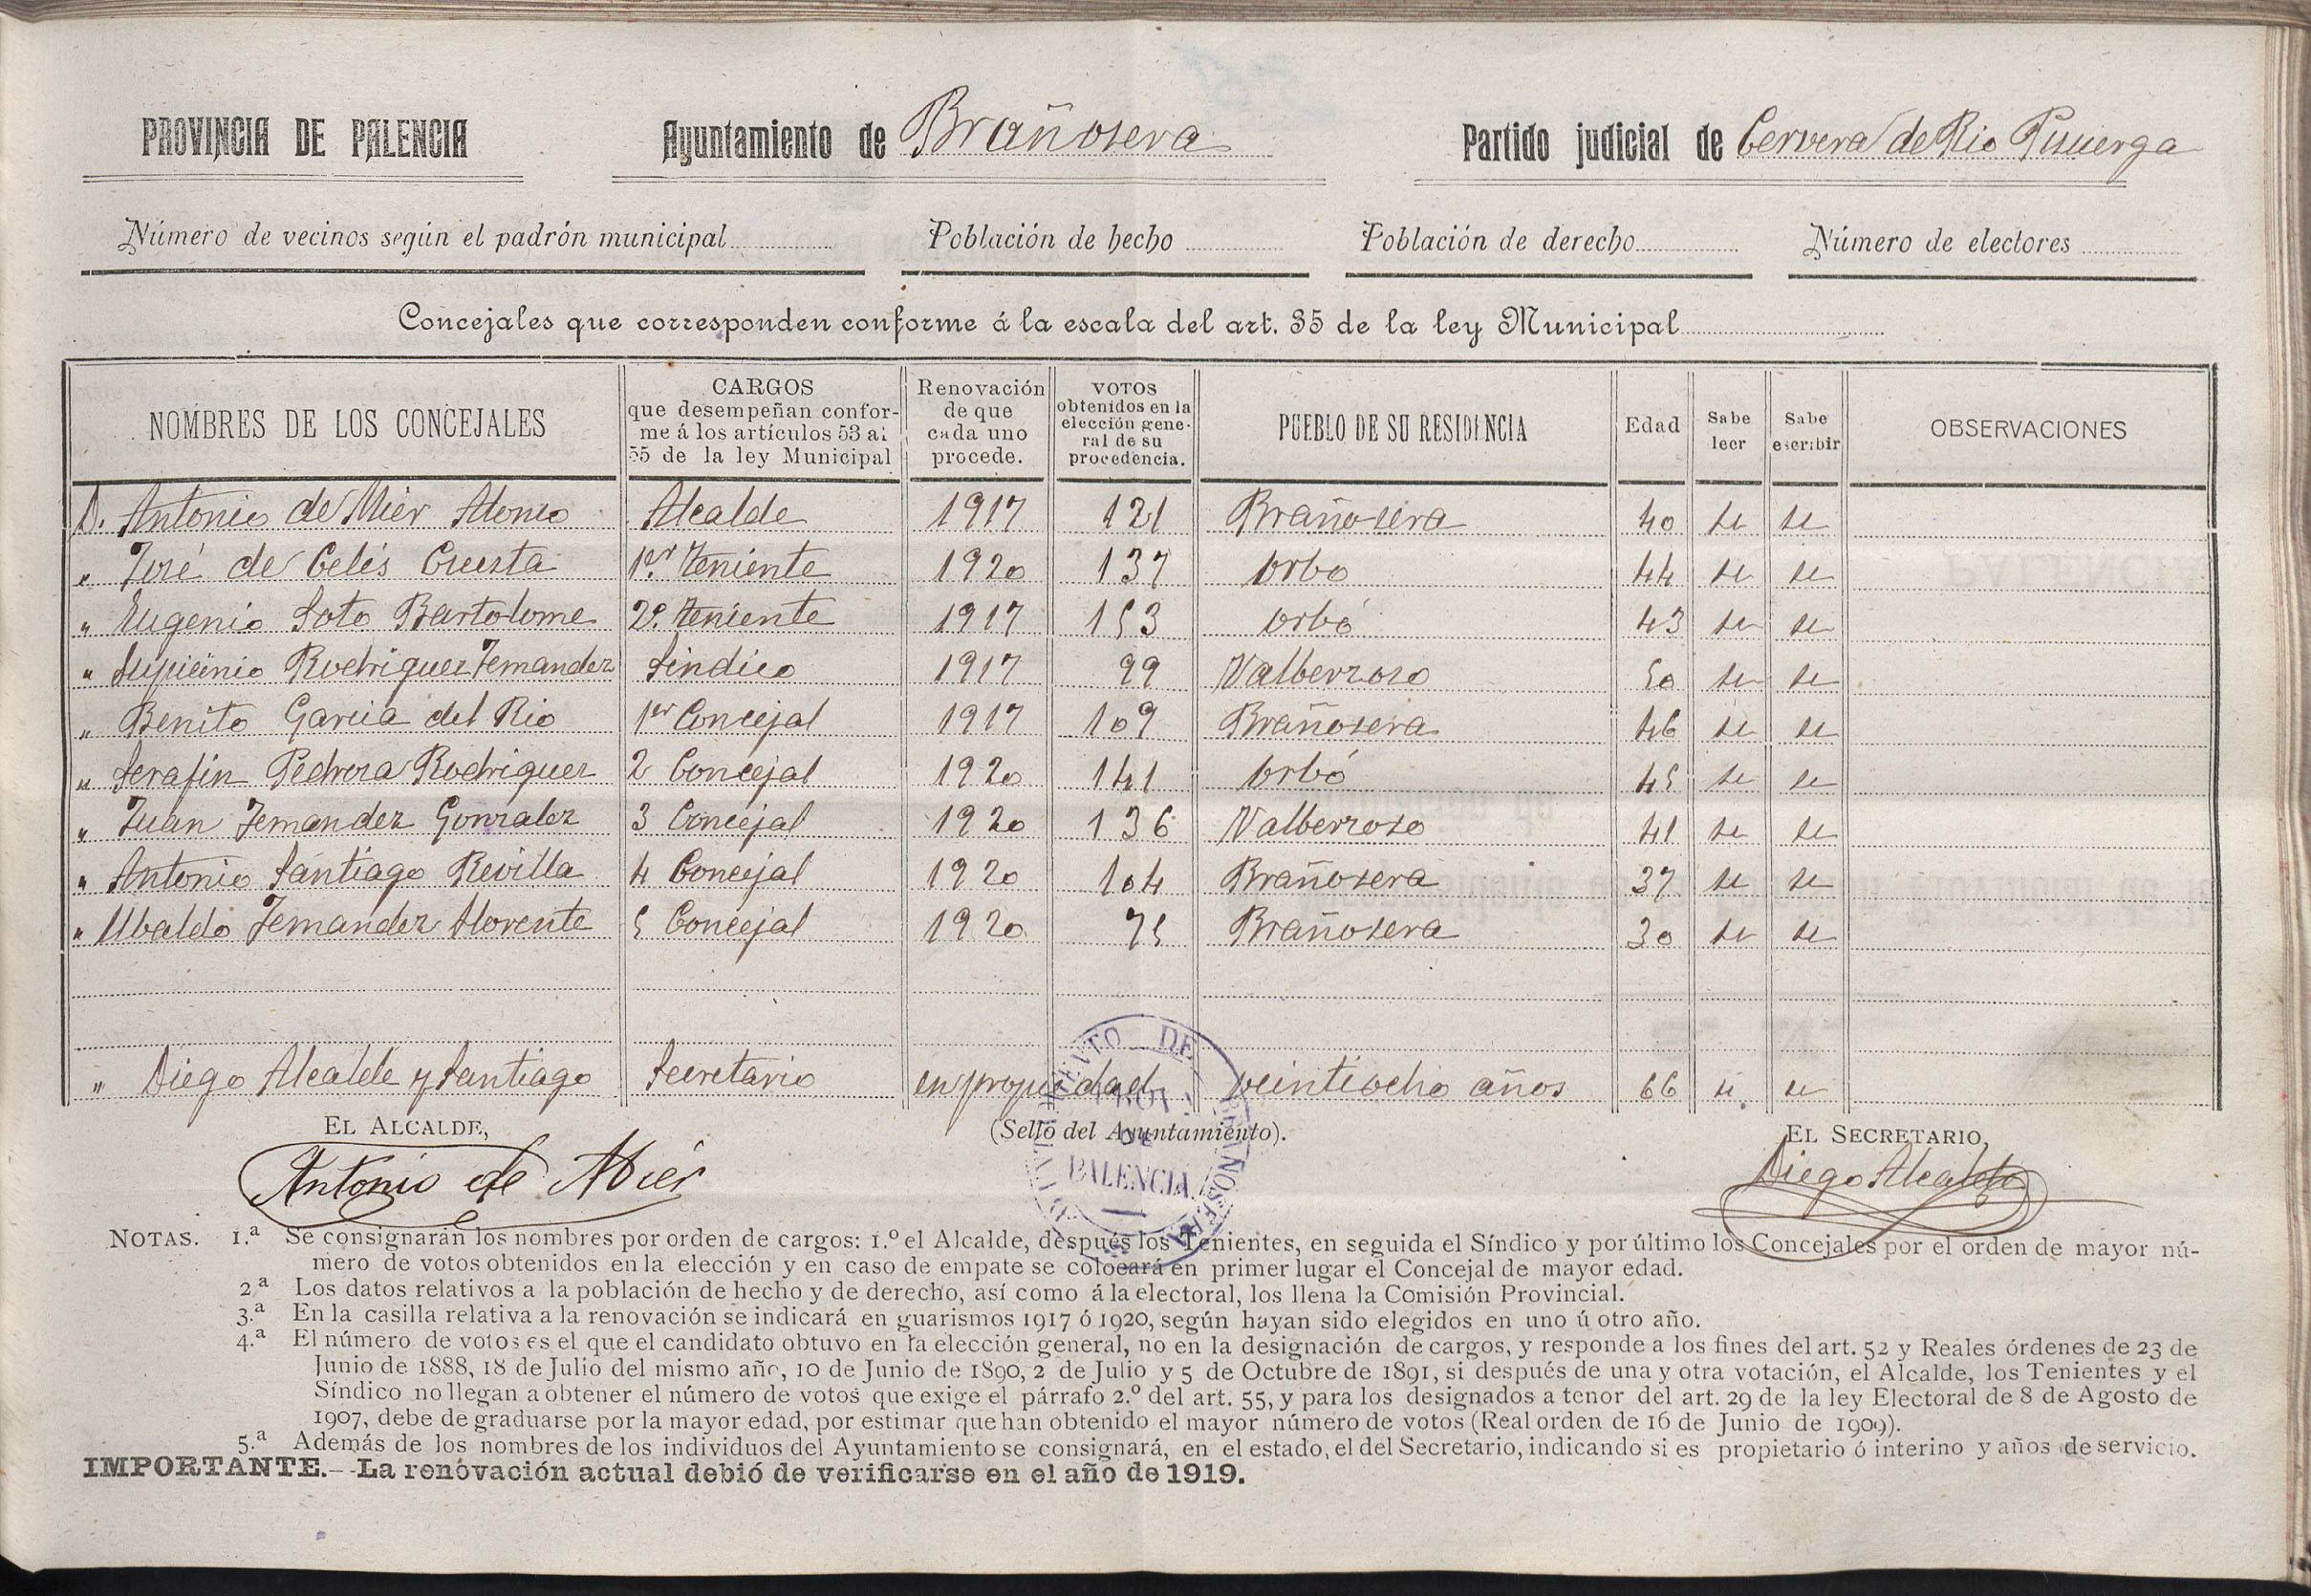 PROVINCIA DE PALENCIA Ayuntamiento de Brañosera Partido judicial de Cervera de Rio Pisuerga
Número de vecinos según el padrón municipal Población de hecho Población de derecho Número de electores
Concejales que corresponden conforme á la escala del art. 35 de la ley Municipal
NOMBRES DE LOS CONCEJALES
CARGOS
que desempeñan confor-
me á los artículos 53 al
55 de la ley Municipal
Renovación
de que
cada uno
procede.
VOTOS
obtenidos en la
elección gene-
ral de su
procedencia.
PUEBLO DE SU RESIDENCIA
Edad
Sabe
leer
Sabe
escribir
OBSERVACIONES
D. Antonio de Mier Alonso Alcalde 1917 121 Brañosera 40 si si
" José de Celis Cuesta 1er. Teniente 1920 137 Orbo 44 si si
" Eugenio Soto Bartolome 2º. Teniente 1917 153 Orbó 43 si si
" Rodriguez Fernandez Sindico 1917 99 Valberzoso 50 si si
" Benito Garcia del Rio 1er Concejal 1917 109 Brañosera 46 si si
" Serafin Pedrosa Rodriguez 2 Concejal 1920 141 Orbó 45 si si
" Juan Fernandez Gonzalez 3 Concejal 1920 136 Valberzoso 41 si si
" Antonio Santiago Revilla 4 Concejal 1920 104 Brañosera 37 si si
" Ubaldo Fernandez Llorente 5 Concejal 1920 75 Brañosera 30 si si
" Diego Alcalde y Santiago Secretario en propiedad veintiocho años 66 si si
EL ALCALDE, (Sello del Ayuntamiento). EL SECRETARIO,
Antonio de Mier Diego Alcalde
AYUNTAMIENTO DE BRAÑOSERA
PROV.A
DE
PALENCIA
NOTAS. 1.ª Se consignarán los nombres por orden de cargos: 1.º el Alcalde, después los Tenientes, en seguida el Síndico y por último los Concejales por el orden de mayor nú-
mero de votos obtenidos en la elección y en caso de empate se colocará en primer lugar el Concejal de mayor edad.
2.ª Los datos relativos a la población de hecho y de derecho, así como á la electoral, los llena la Comisión Provincial.
3.ª En la casilla relativa a la renovación se indicará en guarismos 1917 ó 1920, según hayan sido elegidos en uno ú otro año.
4.ª El número de votos es el que el candidato obtuvo en la elección general, no en la designación de cargos, y responde a los fines del art. 52 y Reales órdenes de 23 de
Junio de 1888, 18 de Julio del mismo año, 10 de Junio de 1890, 2 de Julio y 5 de Octubre de 1891, si después de una y otra votación, el Alcalde, los Tenientes y el
Síndico no llegan a obtener el número de votos que exige el párrafo 2.º del art. 55, y para los designados a tenor del art. 29 de la ley Electoral de 8 de Agosto de
1907, debe de graduarse por la mayor edad, por estimar que han obtenido el mayor número de votos (Real orden de 16 de Junio de 1909).
5.ª Además de los nombres de los individuos del Ayuntamiento se consignará, en el estado, el del Secretario, indicando si es propietario ó interino y años de servicio.
IMPORTANTE.--La renovación actual debió de verificarse en el año de 1919.